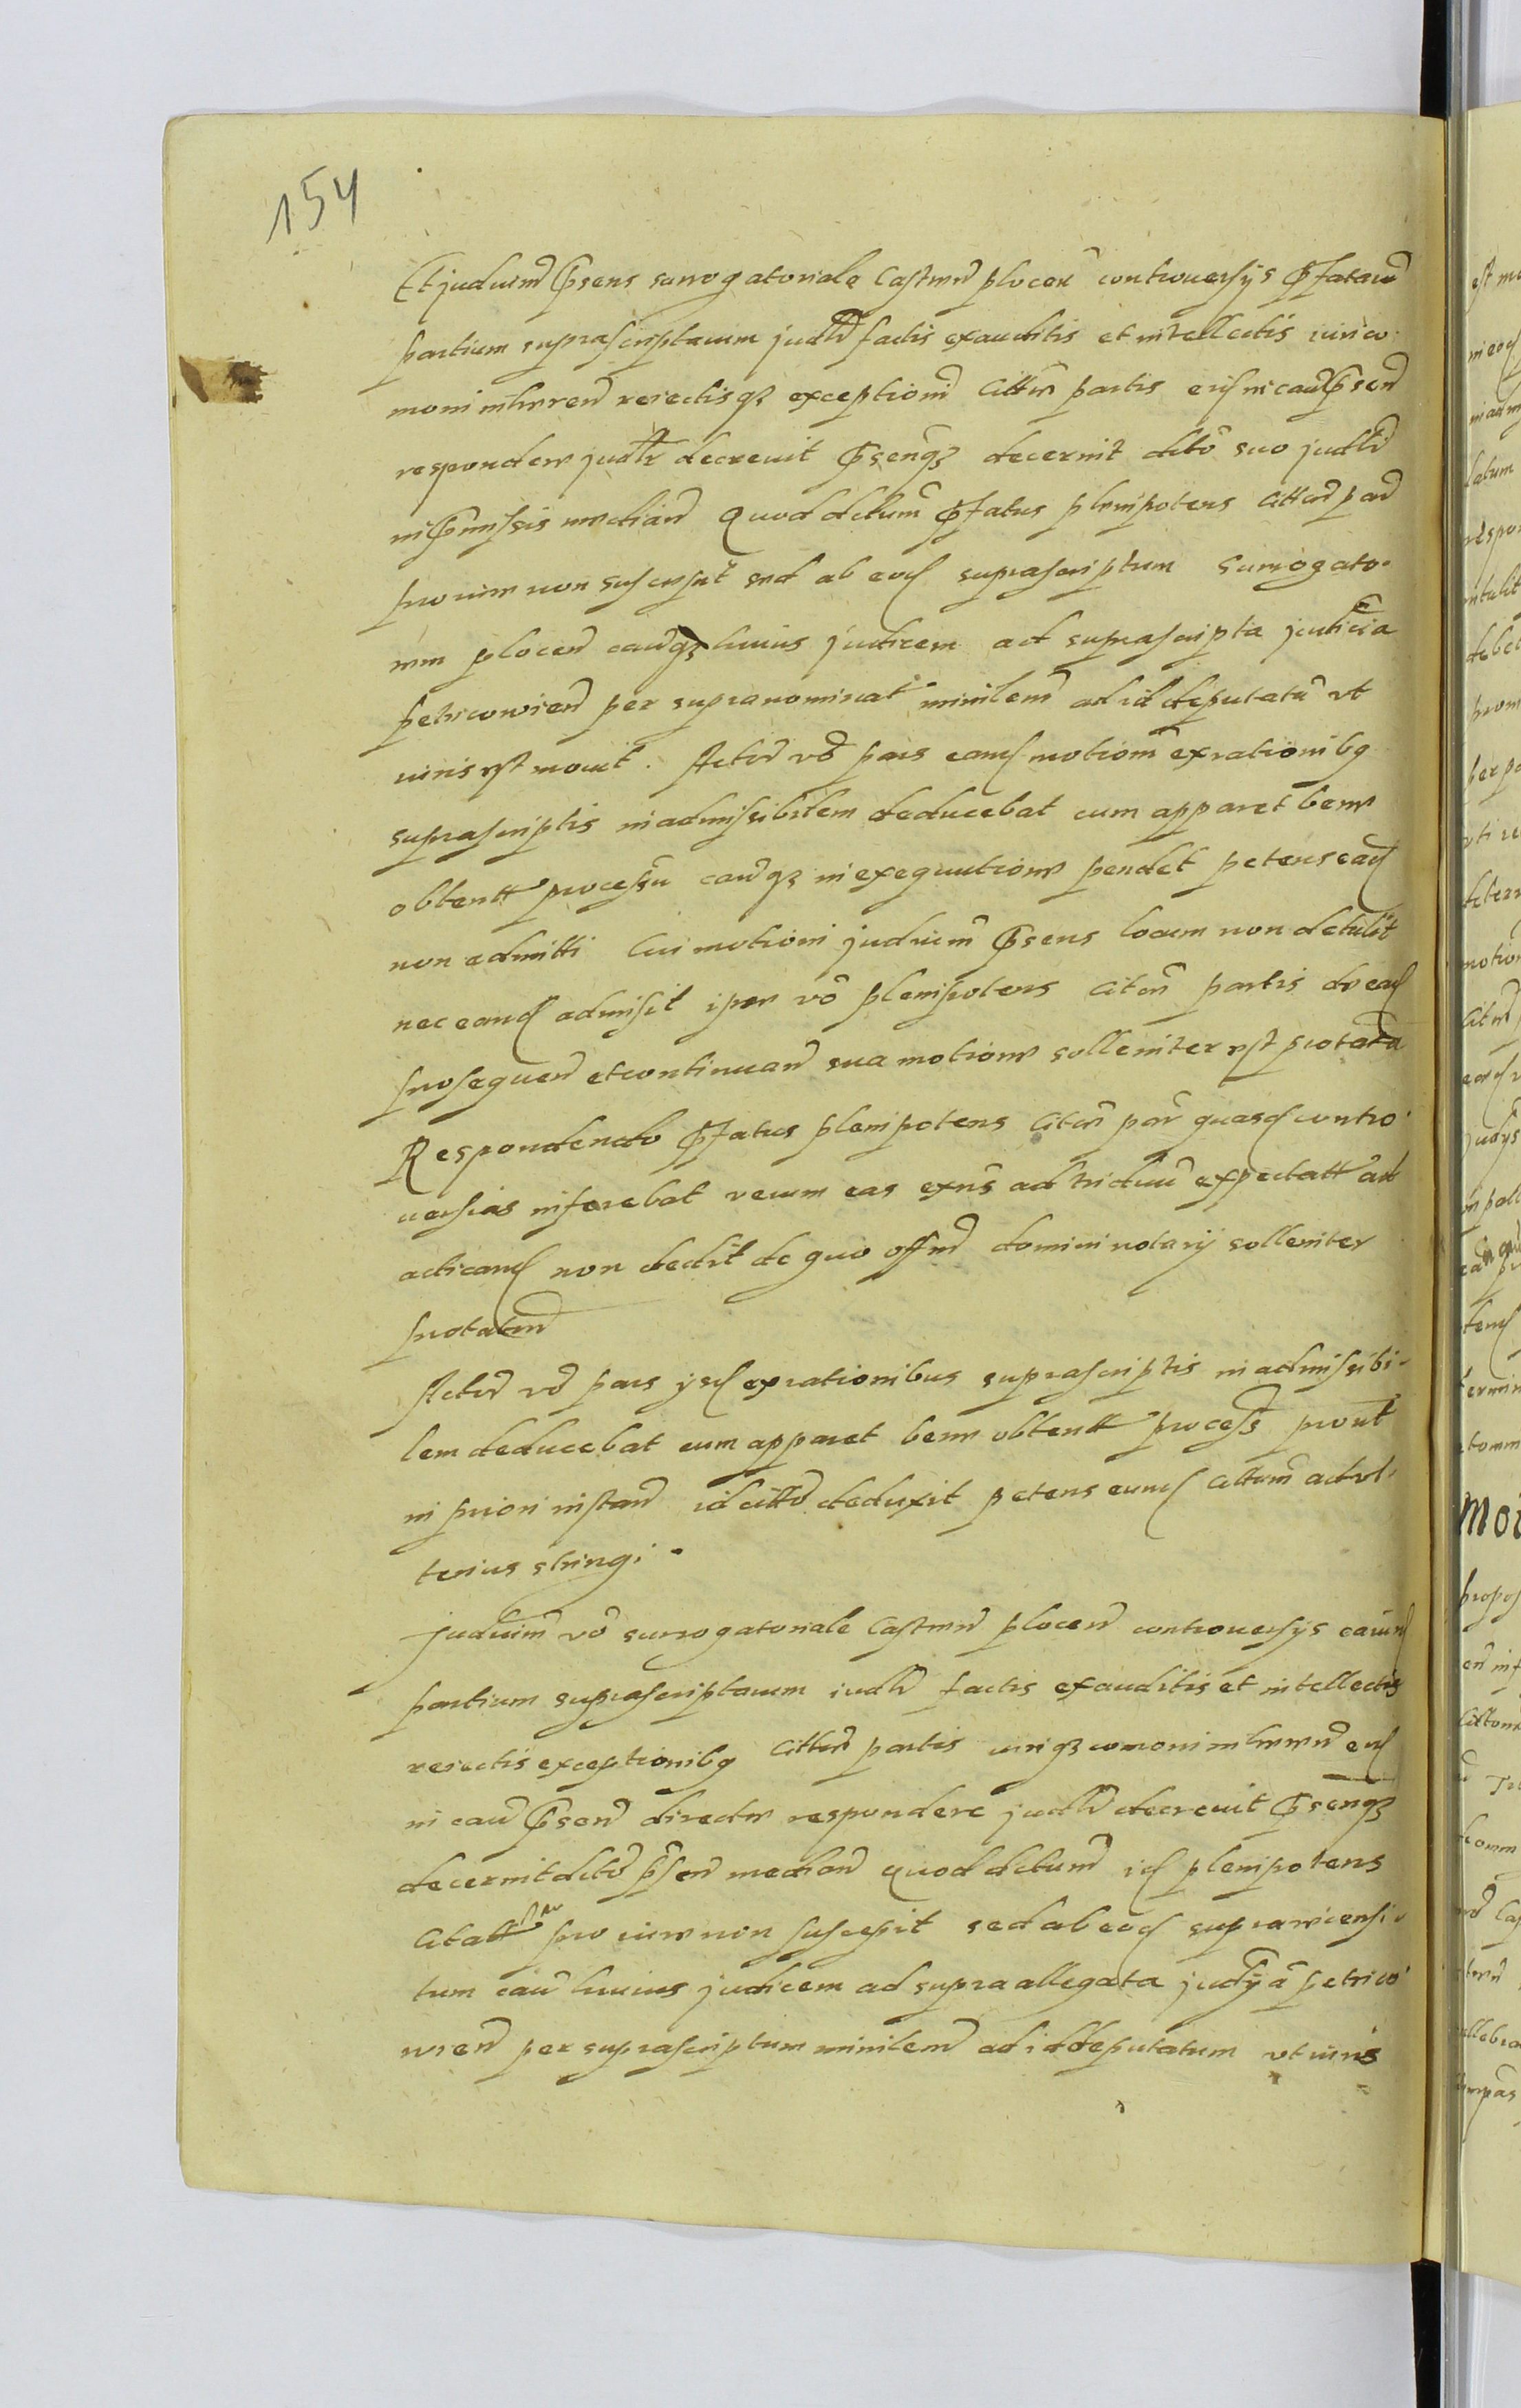 154
Et judicium psens surrogatoriale Castren plocen controuersys pfatarum
partium suprascriptarum judlr factis exauditis et intellectis iuri co-
moni inheren reiectisqз exceptioni Cittae partis eid in cau psen
respondere judlr decreuit psenqз decernit dcto suo judlr
in pmissis median Quod dctum pfatus plenipotens Cittae par
pro iure non suscepit sed ab eod suprascriptum Surrogato-
rem plocen cauqз huius judicem ad suprascripta judicia
petricowien per supranominat ministem ad id deputatu vt
iuris est mouit. Actor vo pars eand motionem ex rationibq
suprascriptis inadmissibilem deducebat cum apparet bene
obtentt processu cauqз in exequutione pendet petens ead
non admitti Cui motioni judicium psens locum non detulit
nec eand admisit ipse vo plenipotens citae partis de ead
prosequen et continuan sua motione solleniter est protata
Respondendo pfatus plenipotens Citae par quasd contro-
uersias inferebat verum eas exns ad triduu expectatt ad
acticand non dedit de quo offm domini notarÿ solleniter
protatur
Actor vo pars ysd ex rationibus suprascriptis inadmissibi-
lem deducebat cum apparet bene obtentt process prout
in priori instan id citto deduxit petens eund Cittatum ad vl-
terius stringi.
Judicium vo surrogatoriale Castren plocen controuersys earund
partium suprascriptarum iudlr factis exauditis et intellectis
reiectis exceptionibq Cittae partis iuriqз comoni inheren eid
in cau psen directe respondere judlr decreuit psenqз
decernit dcto psen median quod dctum id plenipotens
Citatt par pro iure non suscepit sed ab eod suprarecensi-
tum cau huius judicem ad supra allegata judÿa petrico-
wien per suprascriptum ministem ad id deputatum vt iuris